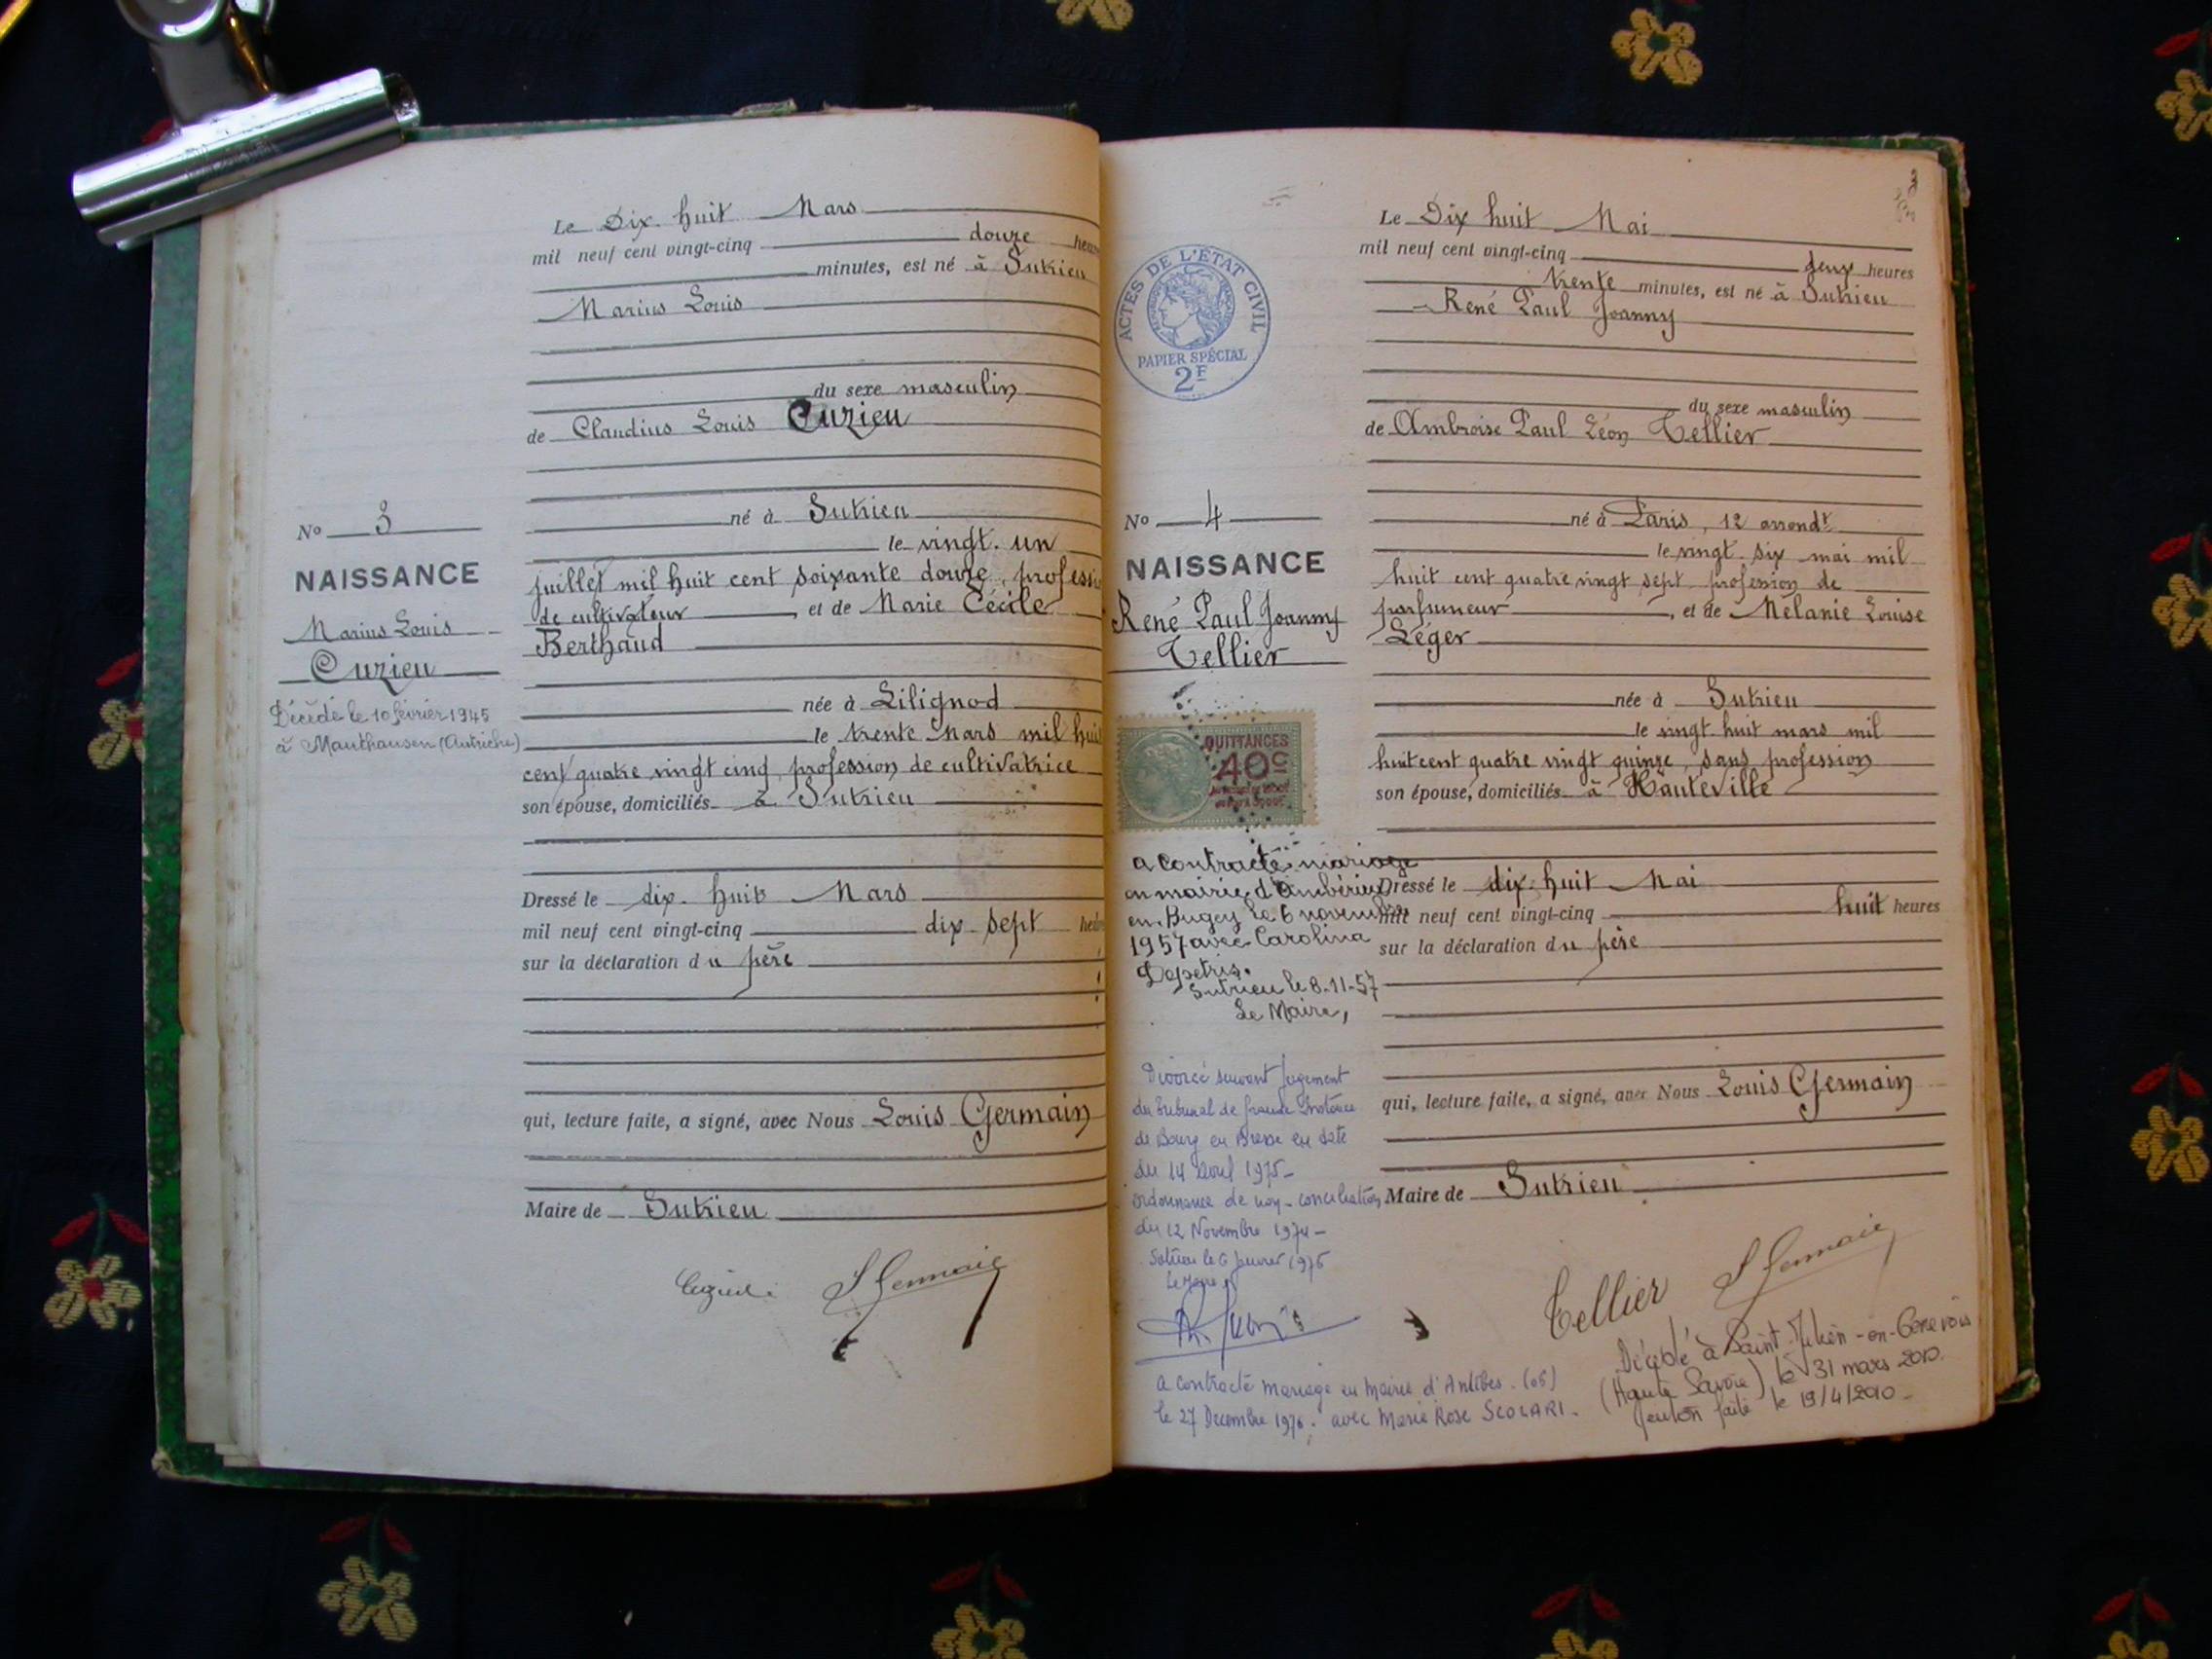 Le Dix huit Mars
mil neuf cent vingt-cinq douze heures
minutes, est né à Sutrieu
Marius Louis
du sexe masculin
de Claudius Louis Cuzieu
né à Sutrieu
le vingt. un
juillet mil huit cent soixante douze, profession
de cultivateur, et de Marie Cécile
Berthaud
née à Lilignod
le trente Mars mil huit
cent quatre vingt cinq, profession de cultivatrice
son épouse, domiciliés à Sutrieu
Dressé le dix. huit Mars
mil neuf cent vingt-cinq dix sept
sur la déclaration du père
qui, lecture faite, a signé, avec Nous Louis Germain
Maire de Sutrieu
L Germain
No 3
NAISSANCE
Marius Louis
Cuzieu
Décédé le 10 février 1945
à Mauthausen (Autriche)
3
Le Dix huit Mai
mil neuf cent vingt-cinq deux heures
trente minutes, est né à Sutrieu
René Paul Joanny
du sexe masculin
de Ambroise Paul Léon Tellier
né à Paris, 12 arrondt
le vingt. six mai mil
huit cent quatre vingt sept profession de
parfumeur, et de Mélanie Louise
Léger
née à Sutrieu
le vingt. huit mars mil
huit cent quatre vingt quinze, sans profession
son épouse, domiciliés à Hauteville
Dressé le dix. huit Mai
mil neuf cent vingt-cinq huit heures
sur la déclaration du père
qui, lecture faite, a signé, avec Nous Louis Germain
Maire de Sutrieu
Tellier L Germain
ACTES DE L'ÉTAT CIVIL
PAPIER SPÉCIAL
2F
No 4
NAISSANCE
René Paul Joanny
Tellier
QUITTANCES
40c
a contracté mariage
en mairie d'Ambérieu
en Bugey le 6 novembre
1957 avec Carolina
Depetris.
Sutrieu le 8-11-57
Le Maire,
Divorcé suivant jugement
du Tribunal de grande Instance
de Bourg en Bresse en date
du 14 Avril 1975-
ordonnance de non-conciliation
du 12 Novembre 1974-
Sutrieu le 6 janvier 1976
Le Maire
a contracté mariage en Mairie d'Antibes. (06)
le 27 Decembre 1976. avec Marie Rose SCOLARI.
Décédé à Saint-Julien-en-Genevois
(Haute Savoie) le 31 mars 2010.
faite le 19/4/2010-